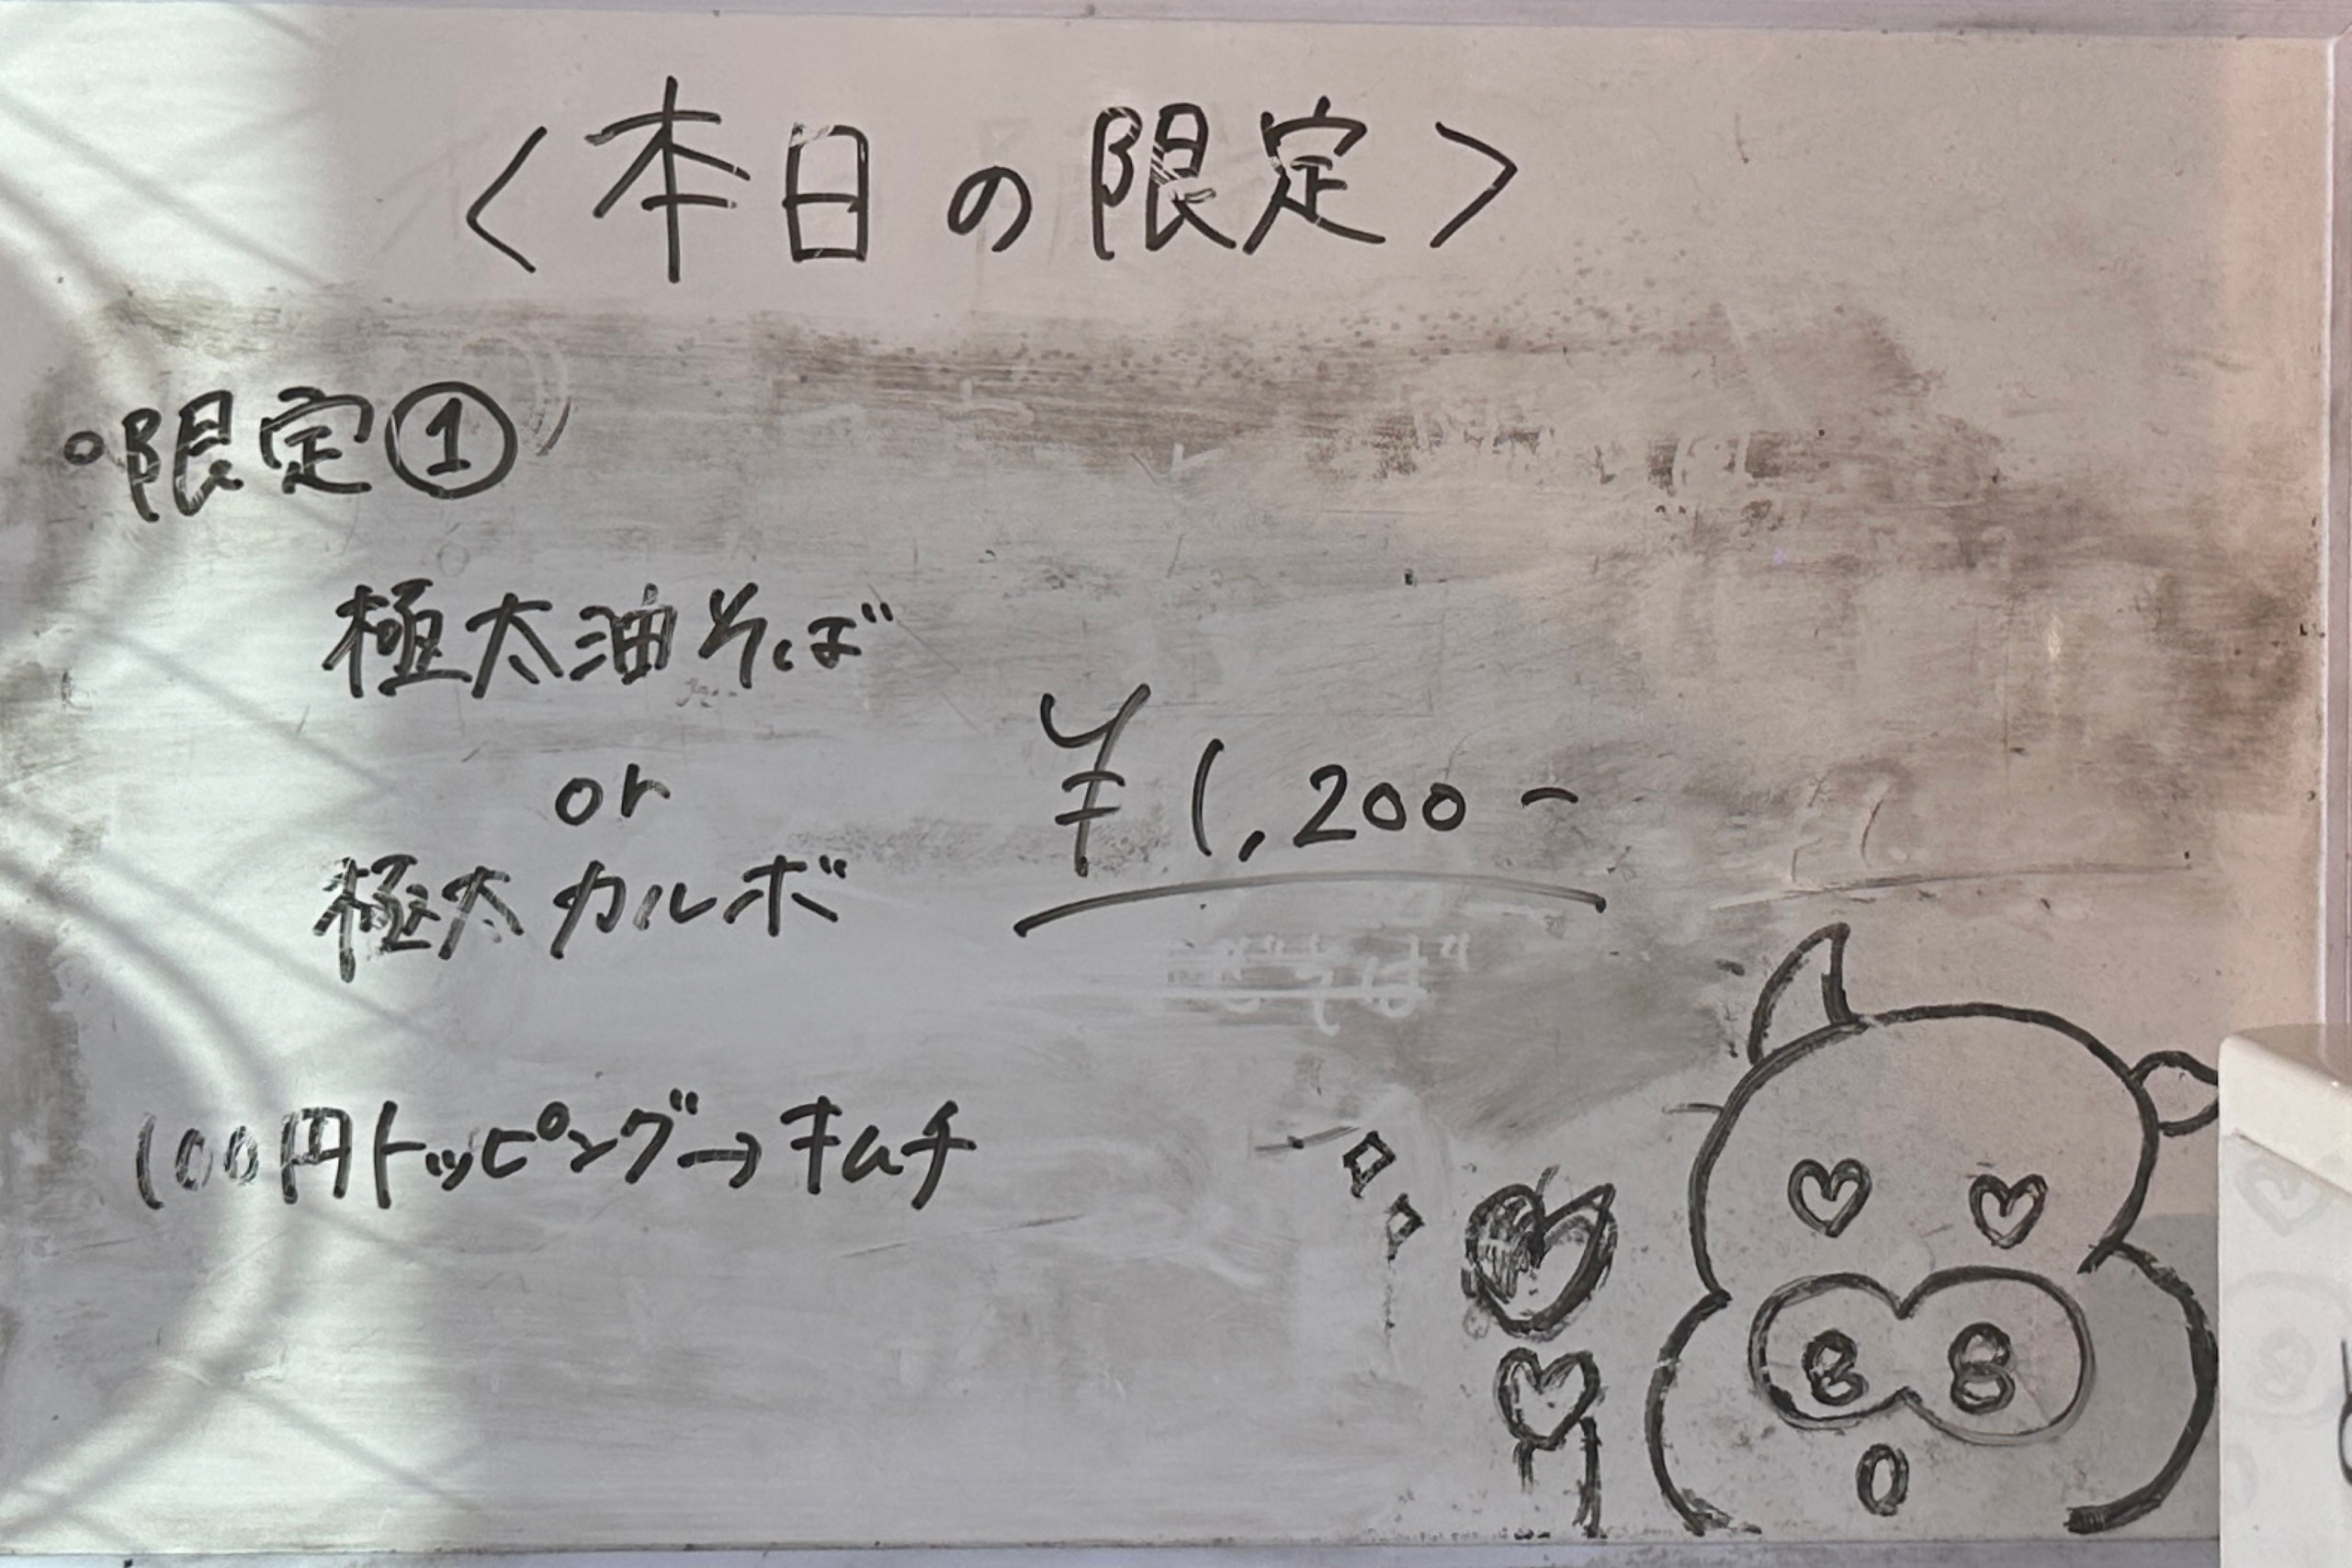 <本日の限定>
○限定①
極太油そば
or
極太カルボ
¥1,200-
100円トッピング→キムチ